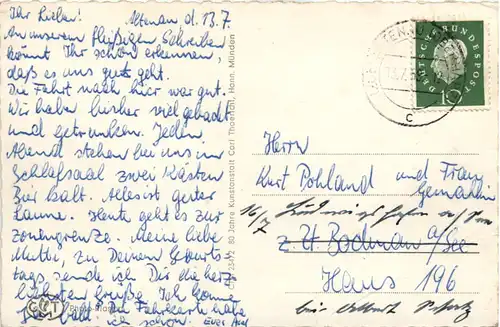 Ihr Lieben! Altenau d. 13.7.
An unserem fleißigen Schreiben
könnt Ihr schon erkennen,
daß es uns gut geht.
Die Fahrt nach hier war gut.
Wir haben bisher viel gebadet
und getrunken. Jeden
Abend stehen bei uns im
Schlafsaal zwei Kästen
Bier kalt. Alles ist guter
Laune. Heute geht es zur
Zonengrenze. Meine liebe
Mutti, zu Deinem Geburts-
tage sende ich Dir die herz-
lichsten Grüße. Ich komme
bald. Fahrkarte habe
ich schon. Euer
80 Jahre Kunstanstalt Carl Thoericht, Hann. Münden
DEUTSCHE BUNDESPOST
10
c
Herrn
Kurt Pohland und Frau
Gemahlin
16/7
z. Zt. Bodman a/See
Haus 196
bei Albert